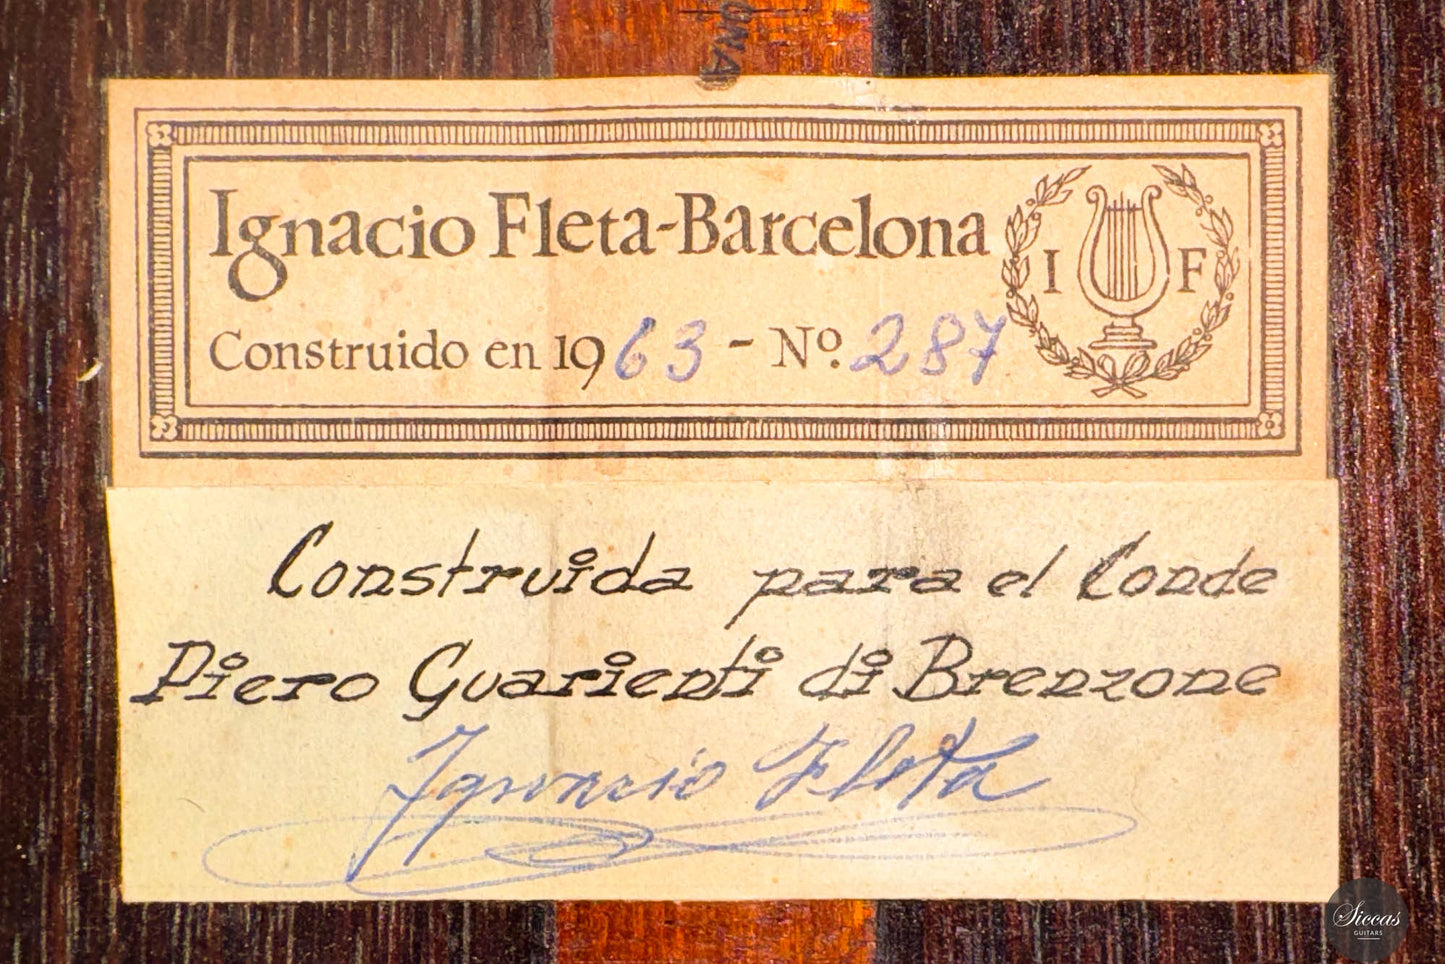 Ignacio Fleta-Barcelona
I F
Construido en 1963 - Nº. 287
Construida para el Conde
Piero Guarienti di Brenzone
Ignacio Fleta
Siccas
GUITARS